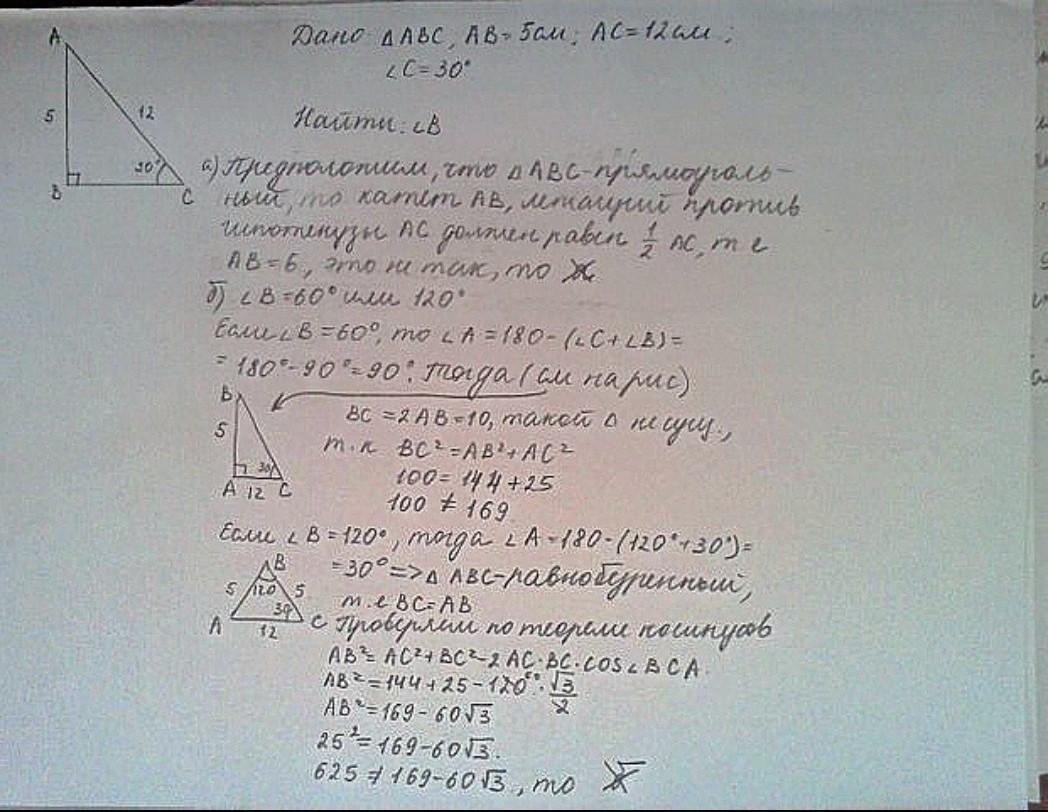 Дано: △ABC, AB=5см; AC=12см;
∠C=30°
Найти: ∠B
A
5
12
30°
B
C
а) Предположим, что △ABC-прямоуголь-
ный, то катет AB, лежащий против
гипотенузы AC должен равен 1/2 AC, т е
AB=6, это не так, то
б) ∠B=60° или 120°
Если ∠B=60°, то ∠A=180-(∠C+∠B)=
=180°-90°=90°. Тогда (см на рис)
B
5
30
A 12 C
BC=2AB=10, такой △ не сущ.,
т.к BC²=AB²+AC²
100=144+25
100≠169
Если ∠B=120°, тогда ∠A=180-(120°+30°)=
=30° => △ABC-равнобедренный,
т.е BC=AB
B
5 120 5
30
A 12 C
Проверяем по теореме косинусов
AB²=AC²+BC²-2AC·BC·cos∠BCA.
AB²=144+25-120·√3/2
AB²=169-60√3
25²=169-60√3.
625≠169-60√3, то